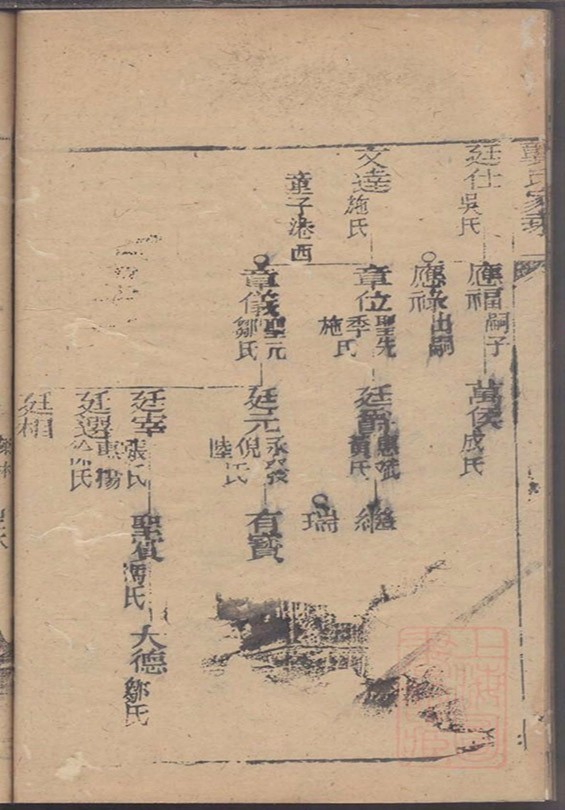 廷仕 吳氏
應福 嗣子
萬侯 成氏
應祿 出嗣
文達 施氏
章位 聖先 季氏 施
廷 黃氏
繼
瑞
童子港西
章儀 聖元 鄒氏
廷元 倪氏 陸氏
有寶
廷宰 張氏
聖貞 馮氏
大德 鄒氏
廷選 惠揚
廷相